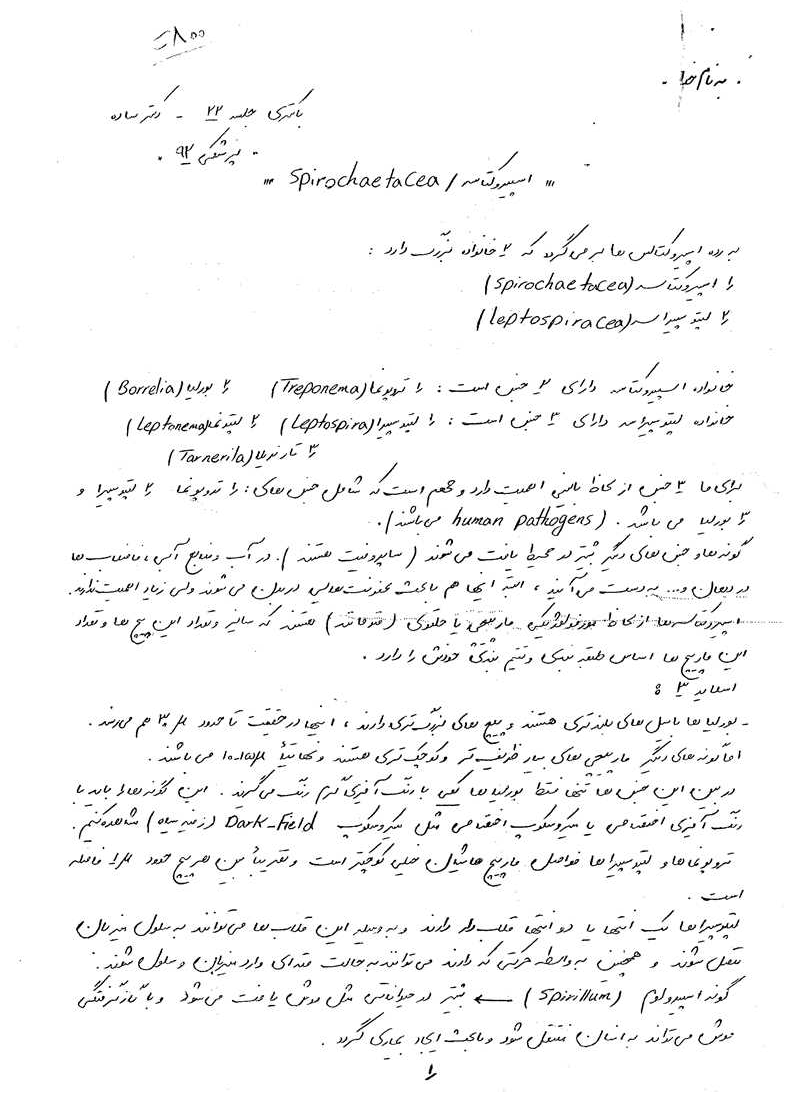 ۸۰۰
به نام خدا
باکتری جلسه ۲۲ - دکتر ساده
پزشکی ۹۲
""" اسپیروکتاسه / spirochaetacea """
به رده اسپیروکتالس ها بر می گردد که ۲ خانواده بزرگ دارد :
۱) اسپیروکتاسه (spirochaetacea)
۲) لپتوسپیراسه (leptospiracea)
خانواده اسپیروکتاسه دارای ۲ جنس است : ۱) تروپونما (Treponema) ۲) بورلیا (Borrelia)
خانواده لپتوسپیراسه دارای ۳ جنس است : ۱) لپتوسپیرا (Leptospira) ۲) لپتونما (Leptonema)
۳) تارنریلا (Tarnerila)
برای ما ۳ جنس از لحاظ بالینی اهمیت دارد و مهم است که شامل جنس های : ۱) تروپونما ۲) لپتوسپیرا و
۳) بورلیا می باشد . (human pathogens می باشند) .
گونه ها و جنس های دیگر بیشتر در محیط یافت می شوند (ساپروفیت هستند) . در آب و منابع آبی ، فاضلاب ها
در دهان و... به دست می آیند ، البته اینها هم باعث عفونت هایی در بدن می شوند ولی زیاد اهمیت ندارند .
اسپیروکتاسه ها از لحاظ مورفولوژیکی مارپیچی یا حلقوی (فنر مانند) هستند که سایز و تعداد این پیچ ها و تعداد
این مارپیچ ها اساس طبقه بندی و تقسیم بندی خودش را دارد .
اسلاید ۳ :
- بورلیا ها باسیل های بلندتری هستند و پیچ های بزرگ تری دارند ، اینها در حقیقت تا حدود ۳۰ μ هم می رسند .
اما گونه های دیگر مارپیچی های بسیار ظریف تر و کوچک تری هستند و نهایتاً ۱۰-۱۵μ می باشند .
در بین این جنس ها تنها فقط بورلیا ها کمی با رنگ آمیزی گرم رنگ می گیرند . این گونه ها باید با
رنگ آمیزی اختصاصی یا میکروسکوپ اختصاصی مثل میکروسکوپ Dark-Field (زمینه سیاه) مشاهده کنیم .
تروپونماها و لپتوسپیراها فواصل مارپیچ هایشان خیلی کوچکتر است و تقریباً بین هر پیچ حدود ۱μ فاصله
است .
لپتوسپیراها یک انتها یا دو انتها قلاب دار دارند و به وسیله این قلاب ها می توانند به سلول میزبان
متصل شوند و همچنین به واسطه حرکتی که دارند می توانند به حالت مته ای وارد میزبان و سلول شوند .
گونه اسپیرولوم (Spirillum) ← بیشتر در حیواناتی مثل موش یافت می شود و با گازگرفتگی
موش می تواند به انسان منتقل شود و باعث ایجاد بیماری گردد .
۱